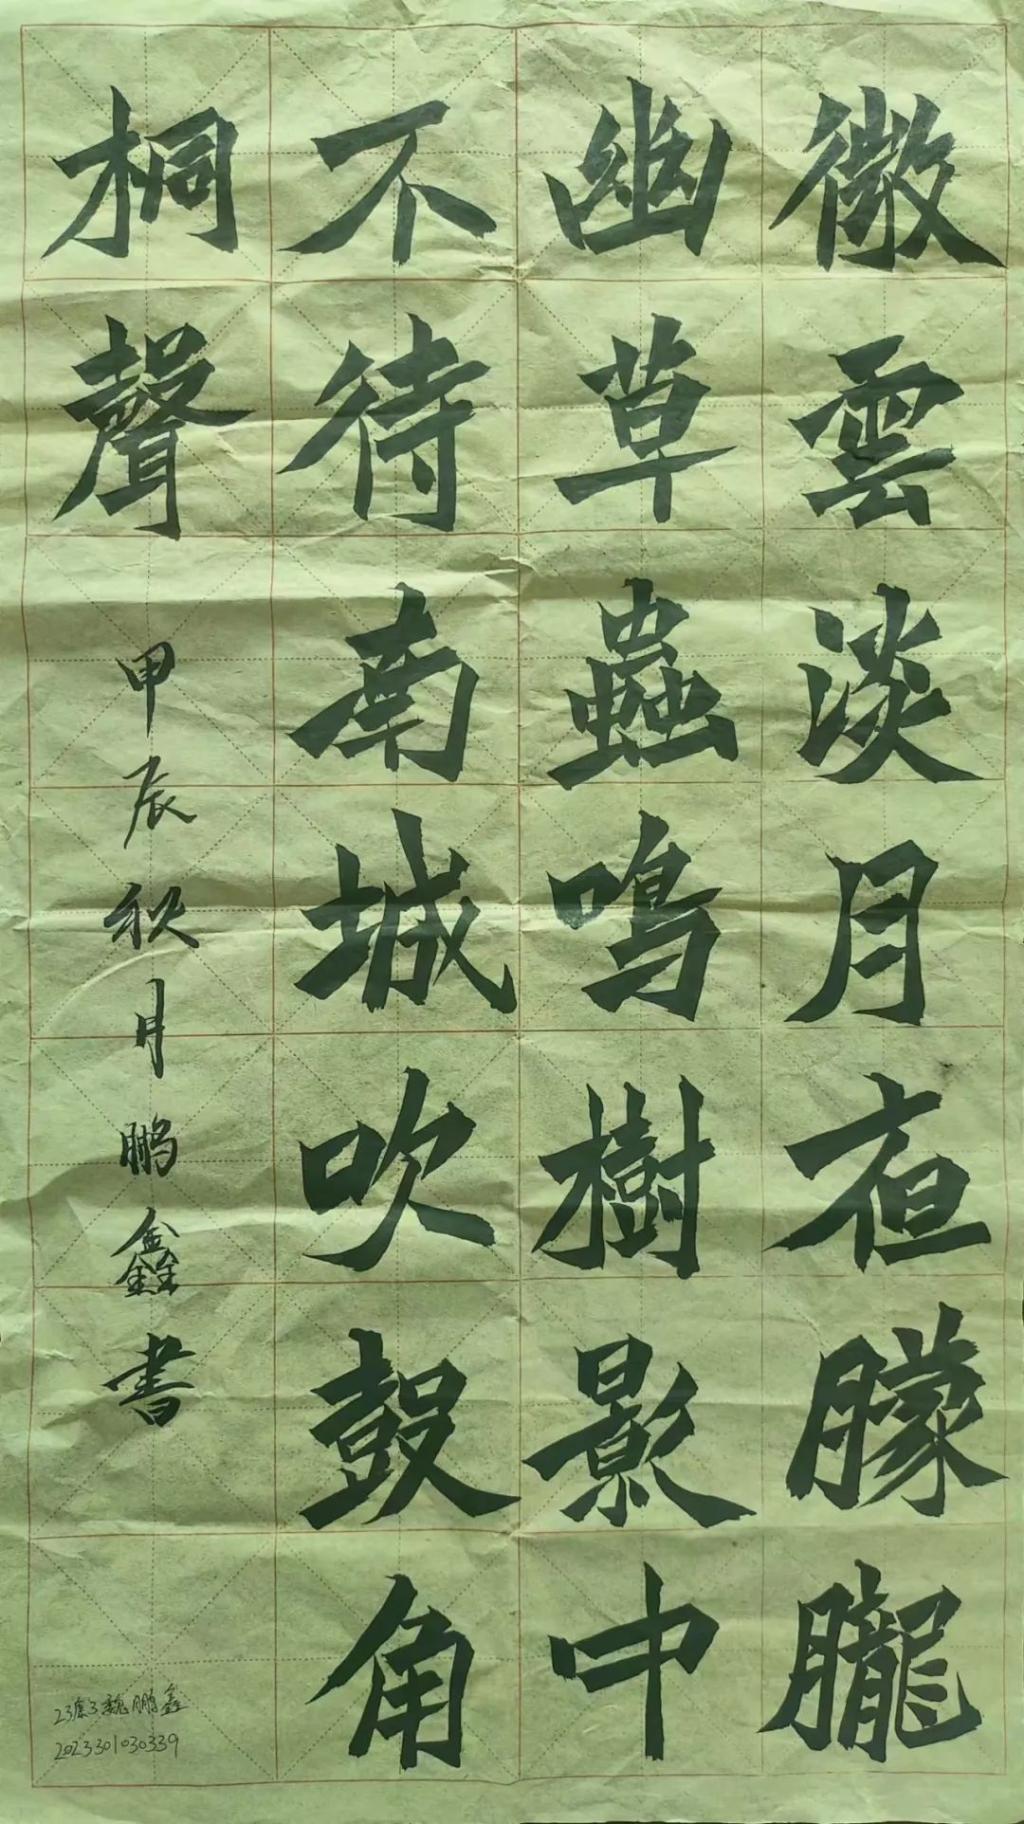 微雲淡月夜朦朧
幽草蟲鳴樹影中
不待南城吹鼓角
桐聲
甲辰秋月鹏鑫書
魏鹏鑫
2023301030339